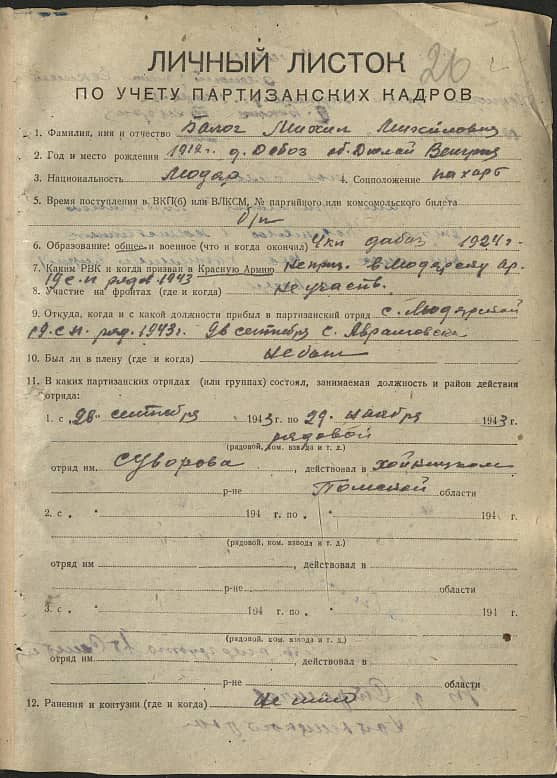 26
ЛИЧНЫЙ ЛИСТОК
ПО УЧЕТУ ПАРТИЗАНСКИХ КАДРОВ
1. Фамилия, имя и отчество Балог Михил Михйлович
2. Год и место рождения 1912 г. д. Добоз об. Дюлай Венгрия
3. Национальность Модяр 4. Соцположение пахарь
5. Время поступления в ВКП(б) или ВЛКСМ, № партийного или комсомольского билета
б/п
6. Образование: общее и военное (что и когда окончил) 4 кл добоз 1924 г.
7. Каким РВК и когда призван в Красную Армию в Модярску ар.
19 с. п ряд. 1943
8. Участие на фронтах (где и когда) не участв.
9. Откуда, когда и с какой должности прибыл в партизанский отряд с. Модярской
19 с. п. ряд. 1943 г. 28 сентября с. Аврамовска
10. Был ли в плену (где и когда) не был
11. В каких партизанских отрядах (или группах) состоял, занимаемая должность и район действия
отряда:
1. с „28" сентября 1943 г. по 29 ноября 1943 г.
рядовой
(рядовой, ком. взвода и т. д.)
отряд им. Суворова, действовал в Хойницком
р-не Полеской области
2. с „ " 194 г. по „ " 194 г.
(рядовой, ком. взвода и т. д.)
отряд им , действовал в
р-не области
3. с „ " 194 г. по „ " 194 г.
(рядовой, ком. взвода и т. д.)
отряд им , действовал в
р-не области
12. Ранения и контузии (где и когда) не имею